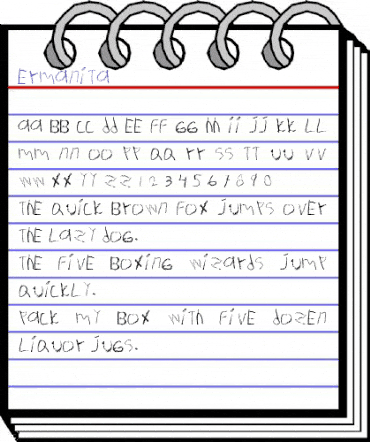 Ermanita
aa BB CC dd EE FF GG hh ii jj KK LL
mm nn oo PP QQ rr SS TT UU VV
WW XX YY ZZ 1 2 3 4 5 6 7 8 9 0
THE QUiCK BrOWn FOX jUmPS OVEr
THE LAZY dOG.
THE FiVE BOXinG WiZArdS jUmP
QUiCKLY.
PACK mY BOX WiTh FiVE dOZEn
LiQUOr jUGS.